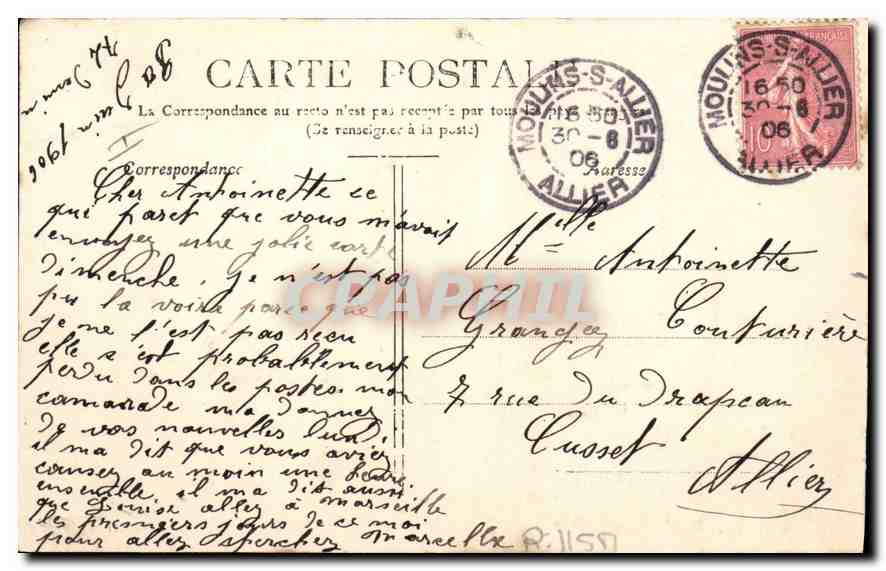 30 Juin 1906
CARTE POSTALE
La Correspondance au recto n'est pas receptée par tous
(Se renseigner à la poste)
Correspondance
Adresse
MOULINS-S-ALLIER
16 50
30 - 6
06
ALLIER
MOULINS-S-ALLIER
16 50
30 - 6
06
ALLIER
FRANÇAISE
10
Cher Antoinette se
qui paret que vous m'avait
envoyez une jolie carte
Dimenche. je n'est pas
pu la voire parce que
je ne l'est pas recu
elle s'est probablement
perdu dans les postes mon
camarade ma donnez
de vos nouvelles lundi
il ma dit que vous aviez
causez au moin une heure
ensemble il ma dit aussi
que Louise allez à Marseille
les premiers jours de ce moi
pour allez chercher Marcelle
Melle Antoinette
Grangez Couturière
7 rue du Drapeau
Cusset
Allier
R.1150
CPAPHIL